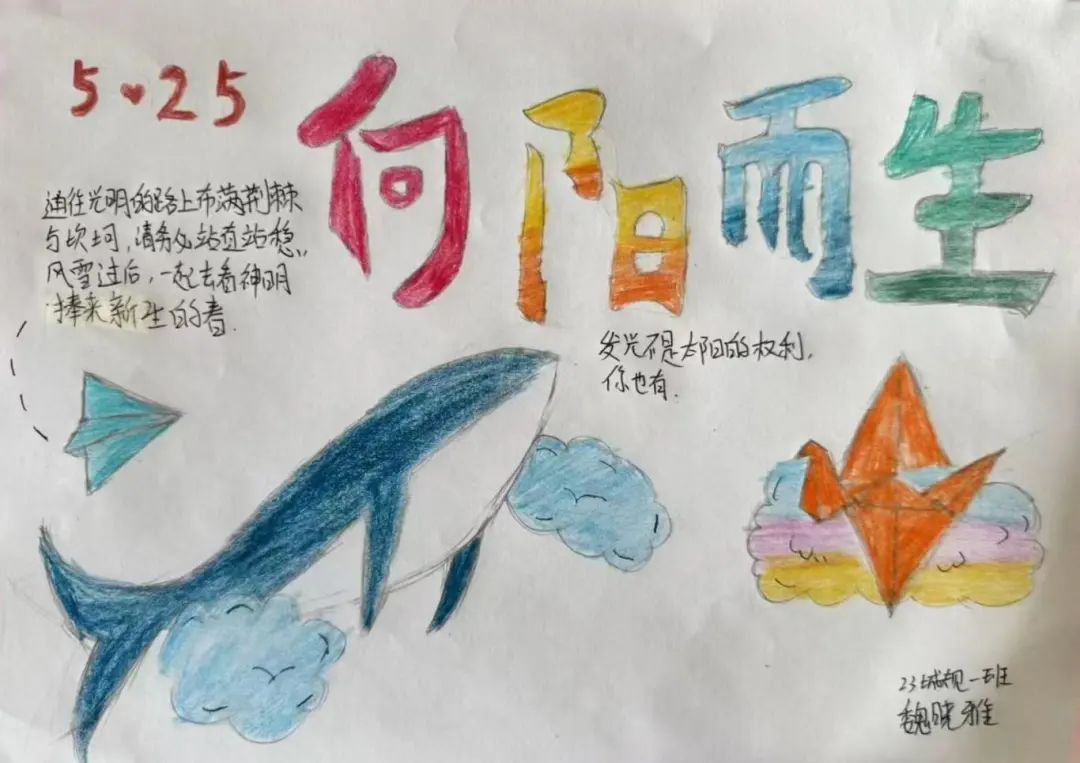 5♥25
向阳而生
通往光明的路上布满荆棘
与坎坷，请务必站直站稳，
风雪过后，一起去看神明
捧来新生的春.
发光不是太阳的权利，
你也有.
23城规一班
魏晓雅